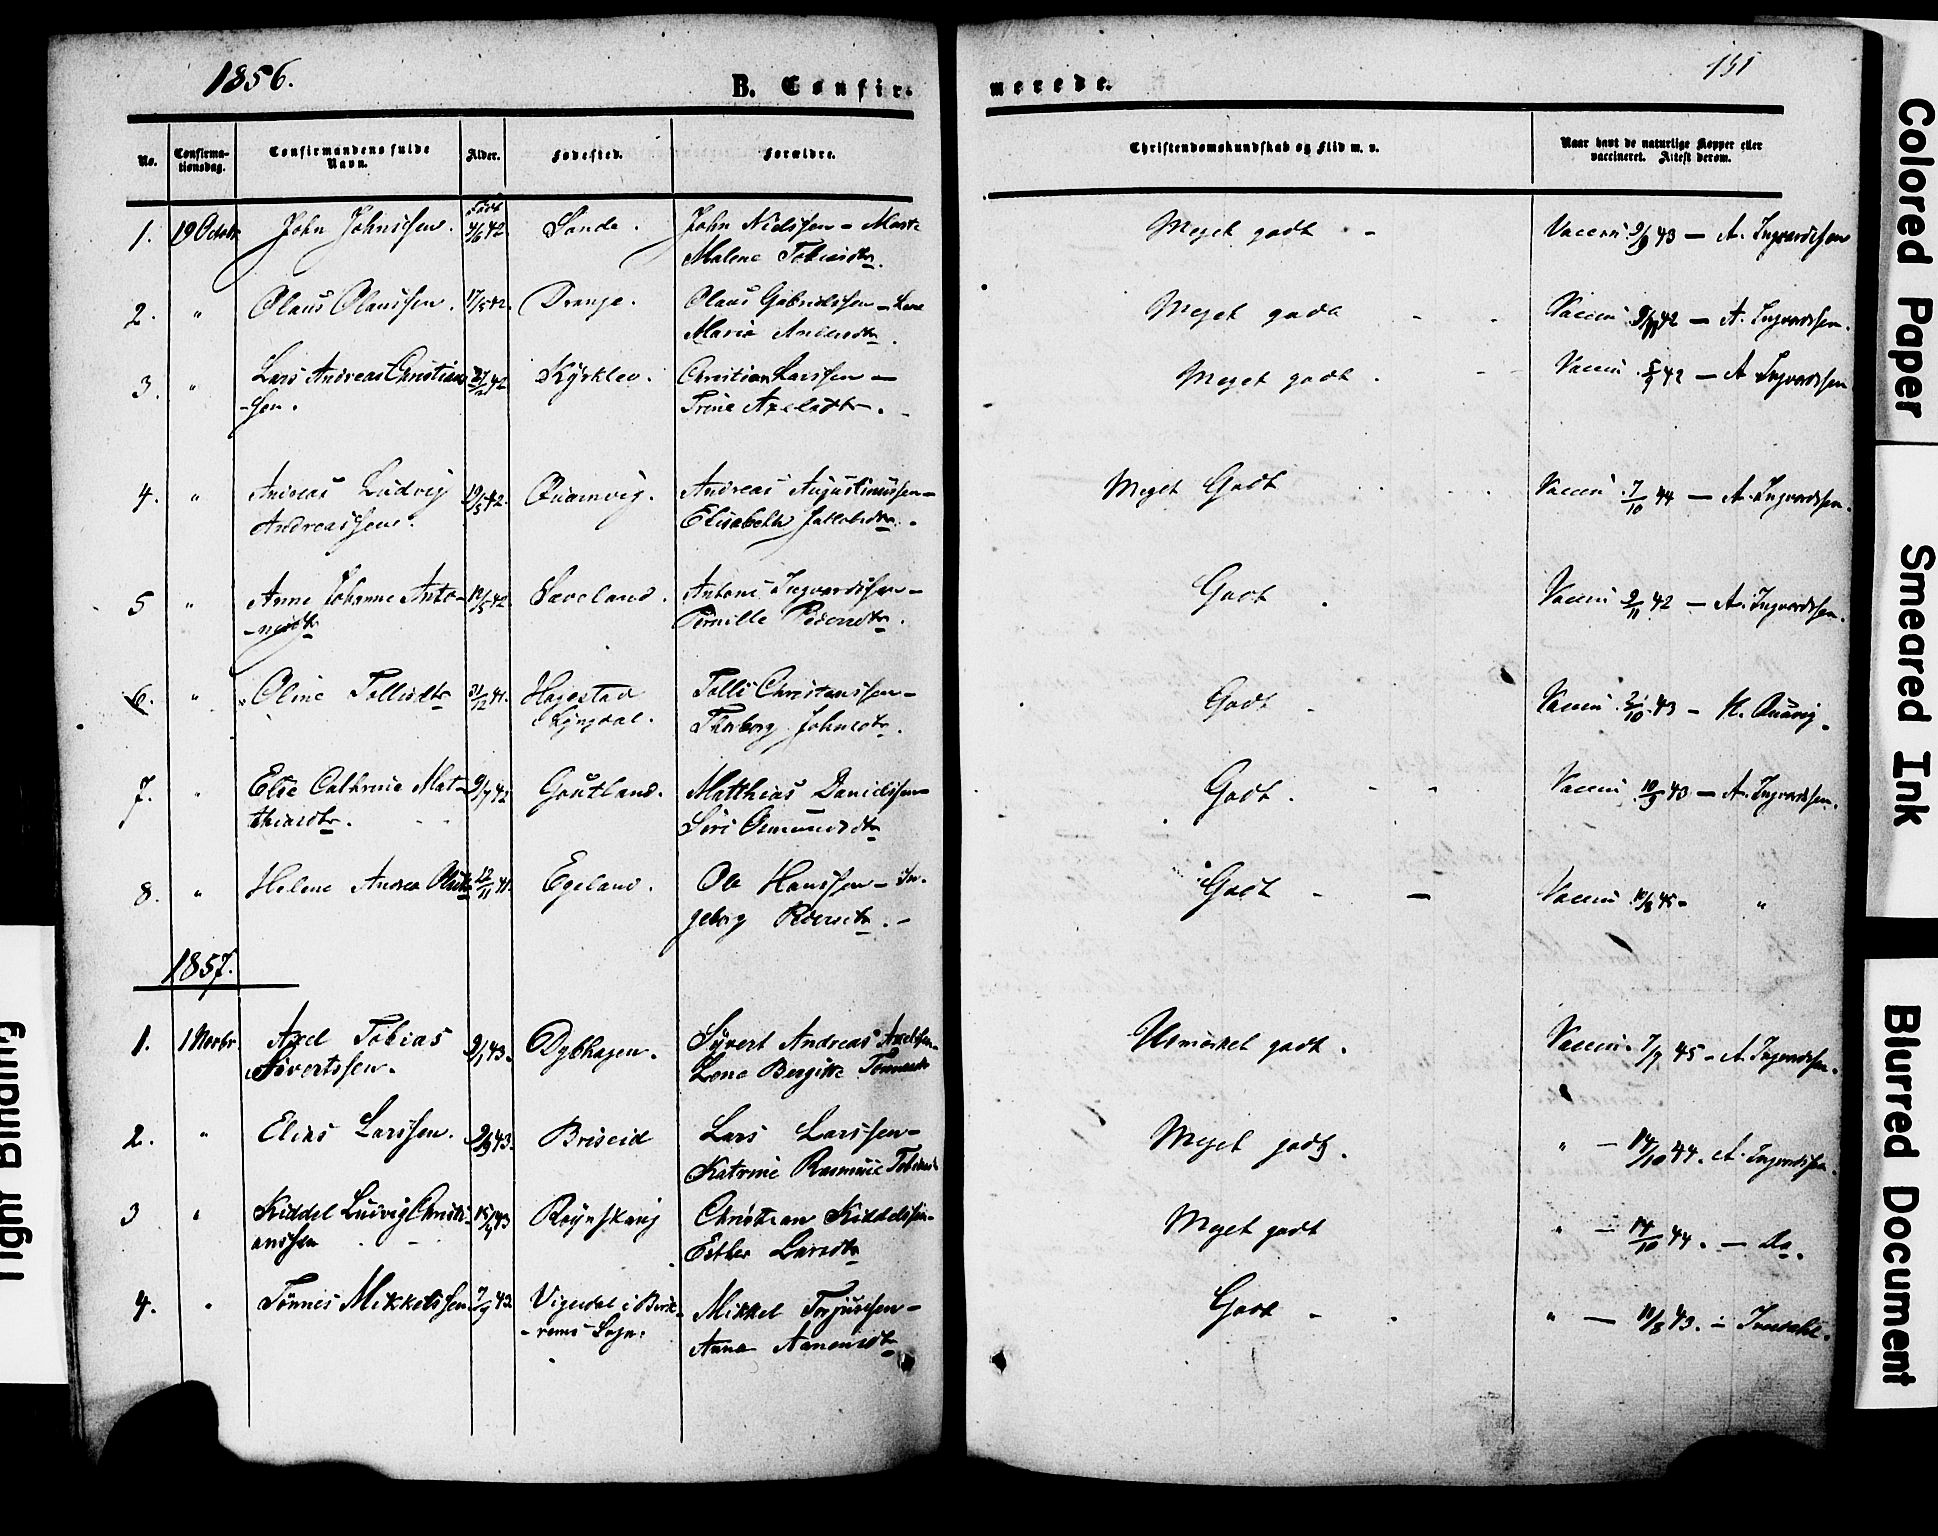 1856.
B. Confir-
merede.
151
No.
Confirma-
tionsdag.
Confirmandens fulde
Navn.
Alder.
Fødested.
Forældre.
Christendomskundskab og Flid m. v.
Naar havt de naturlige Kopper eller
vaccineret. Attest derom.
1. 19 Octobr John Johnsen. Født 42 Sande. John Nielssen - Marte
Malene Tobiasdtr.
Meget godt - Vaccin 43 - A. Ingvardsen
2. " Olaus Olaussen. 17/5 42. Drange. Olaus Gabrielssen - Lene
Maria
Meget godt - Vaccin 42 - A. Ingvardsen.
3. " Lars Andreas Christian
-sen. 42 Christian Larssen -
Trine Axelsdtr. -
Meget godt. Vaccin 5/9 42 - A Ingvardsen
4. " Andreas Ludvig
Andreassen. 19/5 42. Quamvig. Andreas Augustinussen -
Elisabeth Jakobsdtr.
Meget Godt Vaccin 7/10 44 - A. Ingvardsen.
5 " Anne Johanne Anto-
-nisdtr 42. Sæveland. Antoni Ingvardsen -
Pernille Pedersdtr.
Godt. Vaccin 2/11 42 - A. Ingvardsen.
6. " Oline Tollisdtr 31/12 41. Hagestad
Lyngdal. Tolli Christenssen -
Thorborg Johnsdtr.
Godt - Vaccin 2/10 43 - Quavig.
7. " Else Cathrine Mat-
thiasdtr. 9/7 42 Matthias Danielssen -
Siri Osmundsdtr
Godt. Vaccin 10/9 43 - A. Ingvardsen.
8. " Helene Andrea Olsdtr 12/11 41. Egeland. Ole Hanssen - In-
geborg Pedersdtr. -
Godt - - Vaccin 10/8 45 - "
1857.
1. 1 Novbr. Axel Tobias
Sivertssen. 9/1 43. Dybhagen. Syvert Andreas Axelsen -
Lene Bergitte Tønnesdtr
Udmærket godt. Vaccin. 7/7 45 - A. Ingvardsen.
2. " Elias Larssen. 2/9 43. Briseid Lars Larssen -
Katrine Rasmine Tobiasdtr
Meget godt. " - 14/10 44. A. Ingvardsen.
3 " Kiddel Ludvig Christi-
anssen 43 Christian Kiddelsen -
Esther Larsdtr
Meget godt " - 14/10 44. - Do.
4. " Tønnes Mikkelssen 7/9 42 Vigesdal i
-rems Sogn. Mikkel Torjussen -
Anna
Godt - " - 11/8 43. -
Colored Paper
Smeared Ink
Blurred Document
Tight Binding